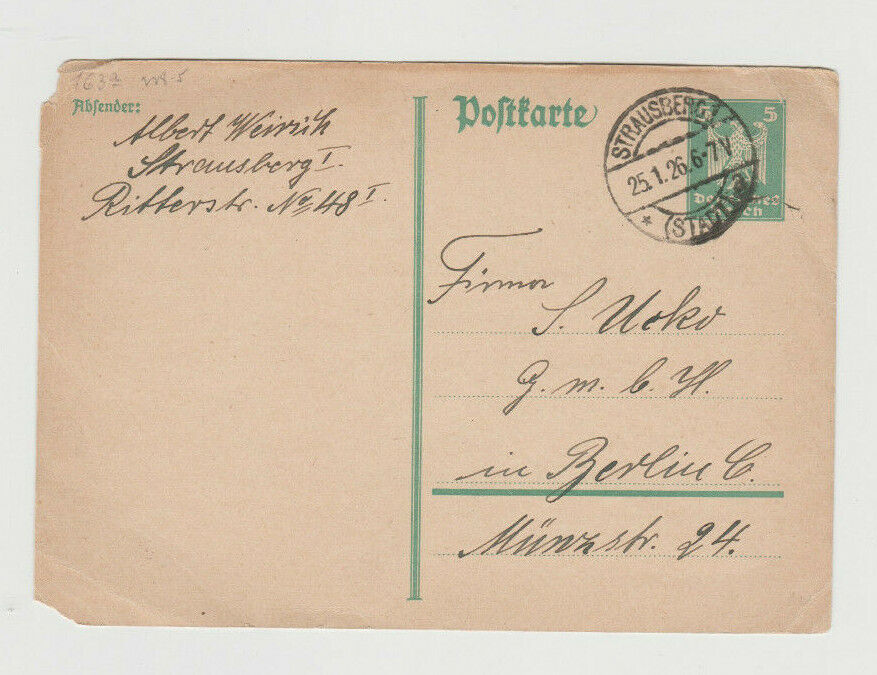 Absender:
Albert Weirich
Strausberg I.
Ritterstr. No 48 I
Postkarte
5
STRAUSBERG
25.1.26.6-7V
* (STADT)
Firma
S. Ucko
G. m. b. H.
in Berlin C.
Münzstr. 24.